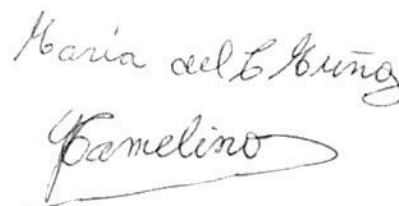 María del C Muñoz
Camelino